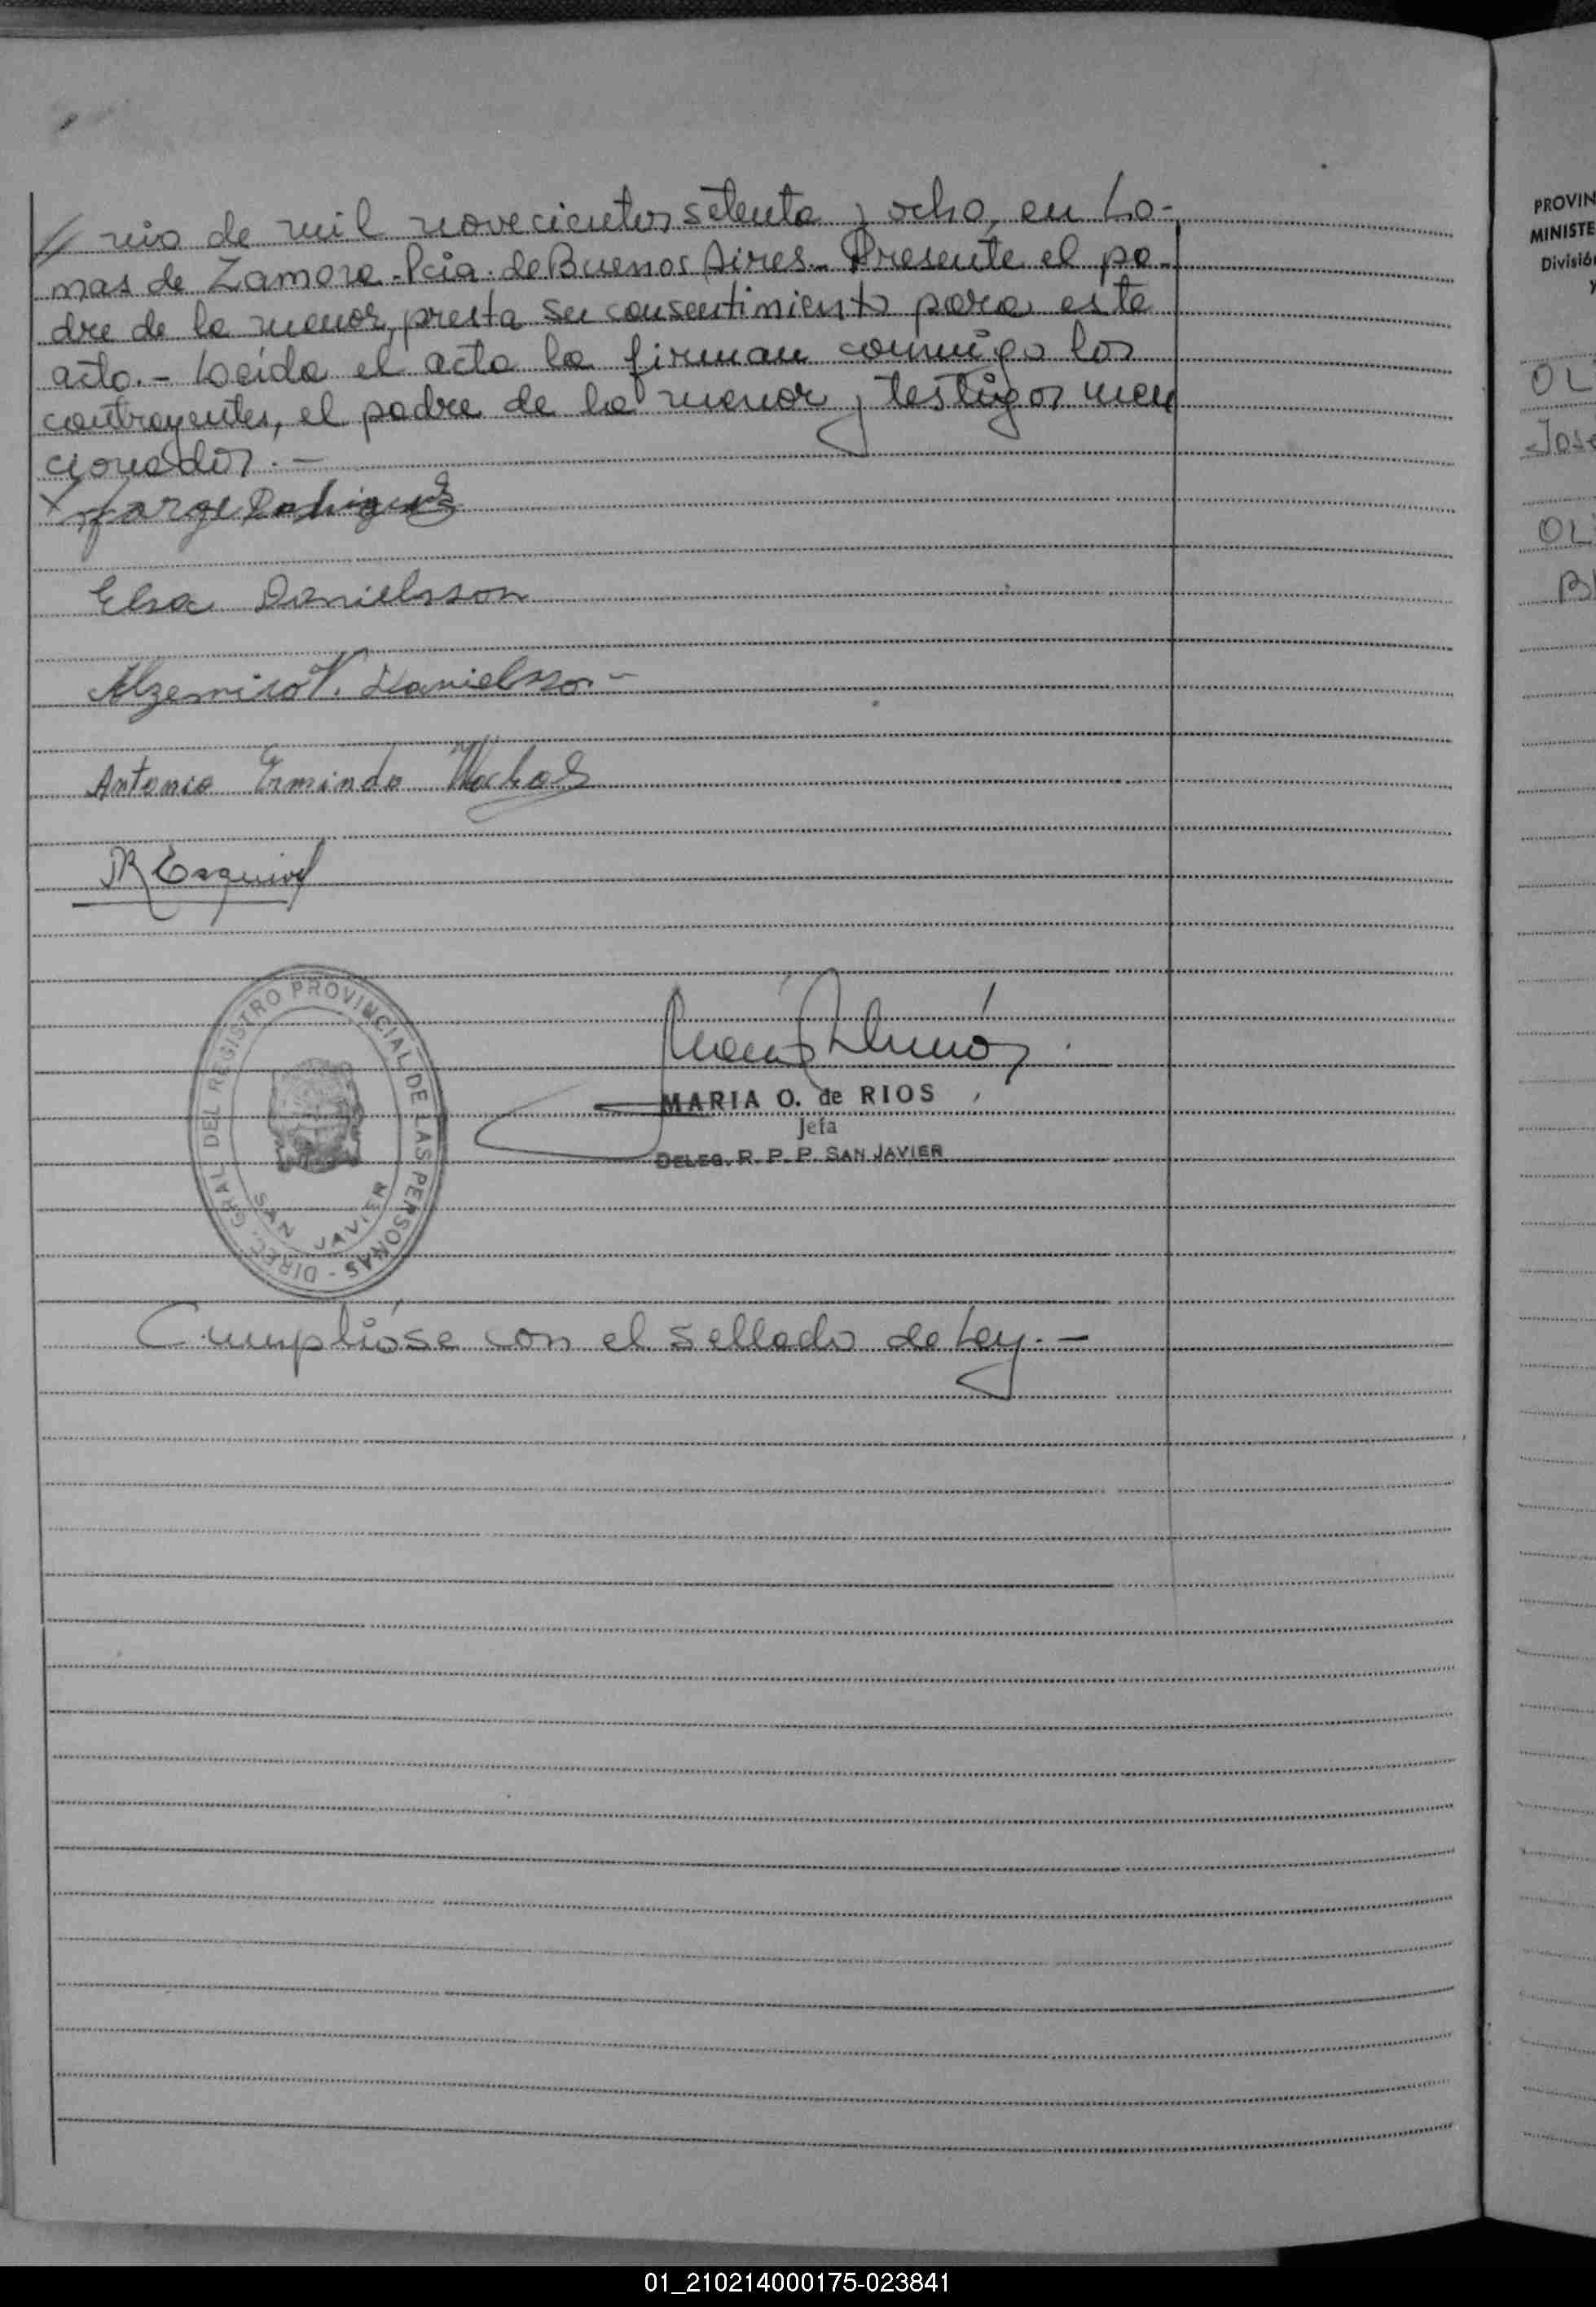 // nio de mil novecientos setenta y ocho, en Lo-
mas de Zamora - Pcia. de Buenos Aires.- Presente el pa-
dre de la menor, presta su consentimiento para este
acto.- Leida el acta la firman conmigo los
contrayentes, el padre de la menor y testigos men
cionados.-
Jorge Rodriguez
Elsa Danielsson
Alzemiro V. Danielsson
Antonio Ermindo
JR Esquivel
DIREC. GRAL. DEL REGISTRO PROVINCIAL DE LAS PERSONAS -
SAN JAVIER
MARIA O. de RIOS
Jefa
DELEG. R. P. P. SAN JAVIER
Cumplióse con el sellado de Ley.-
PROVIN
MINISTE
División
OL
José
OL
01_210214000175-023841